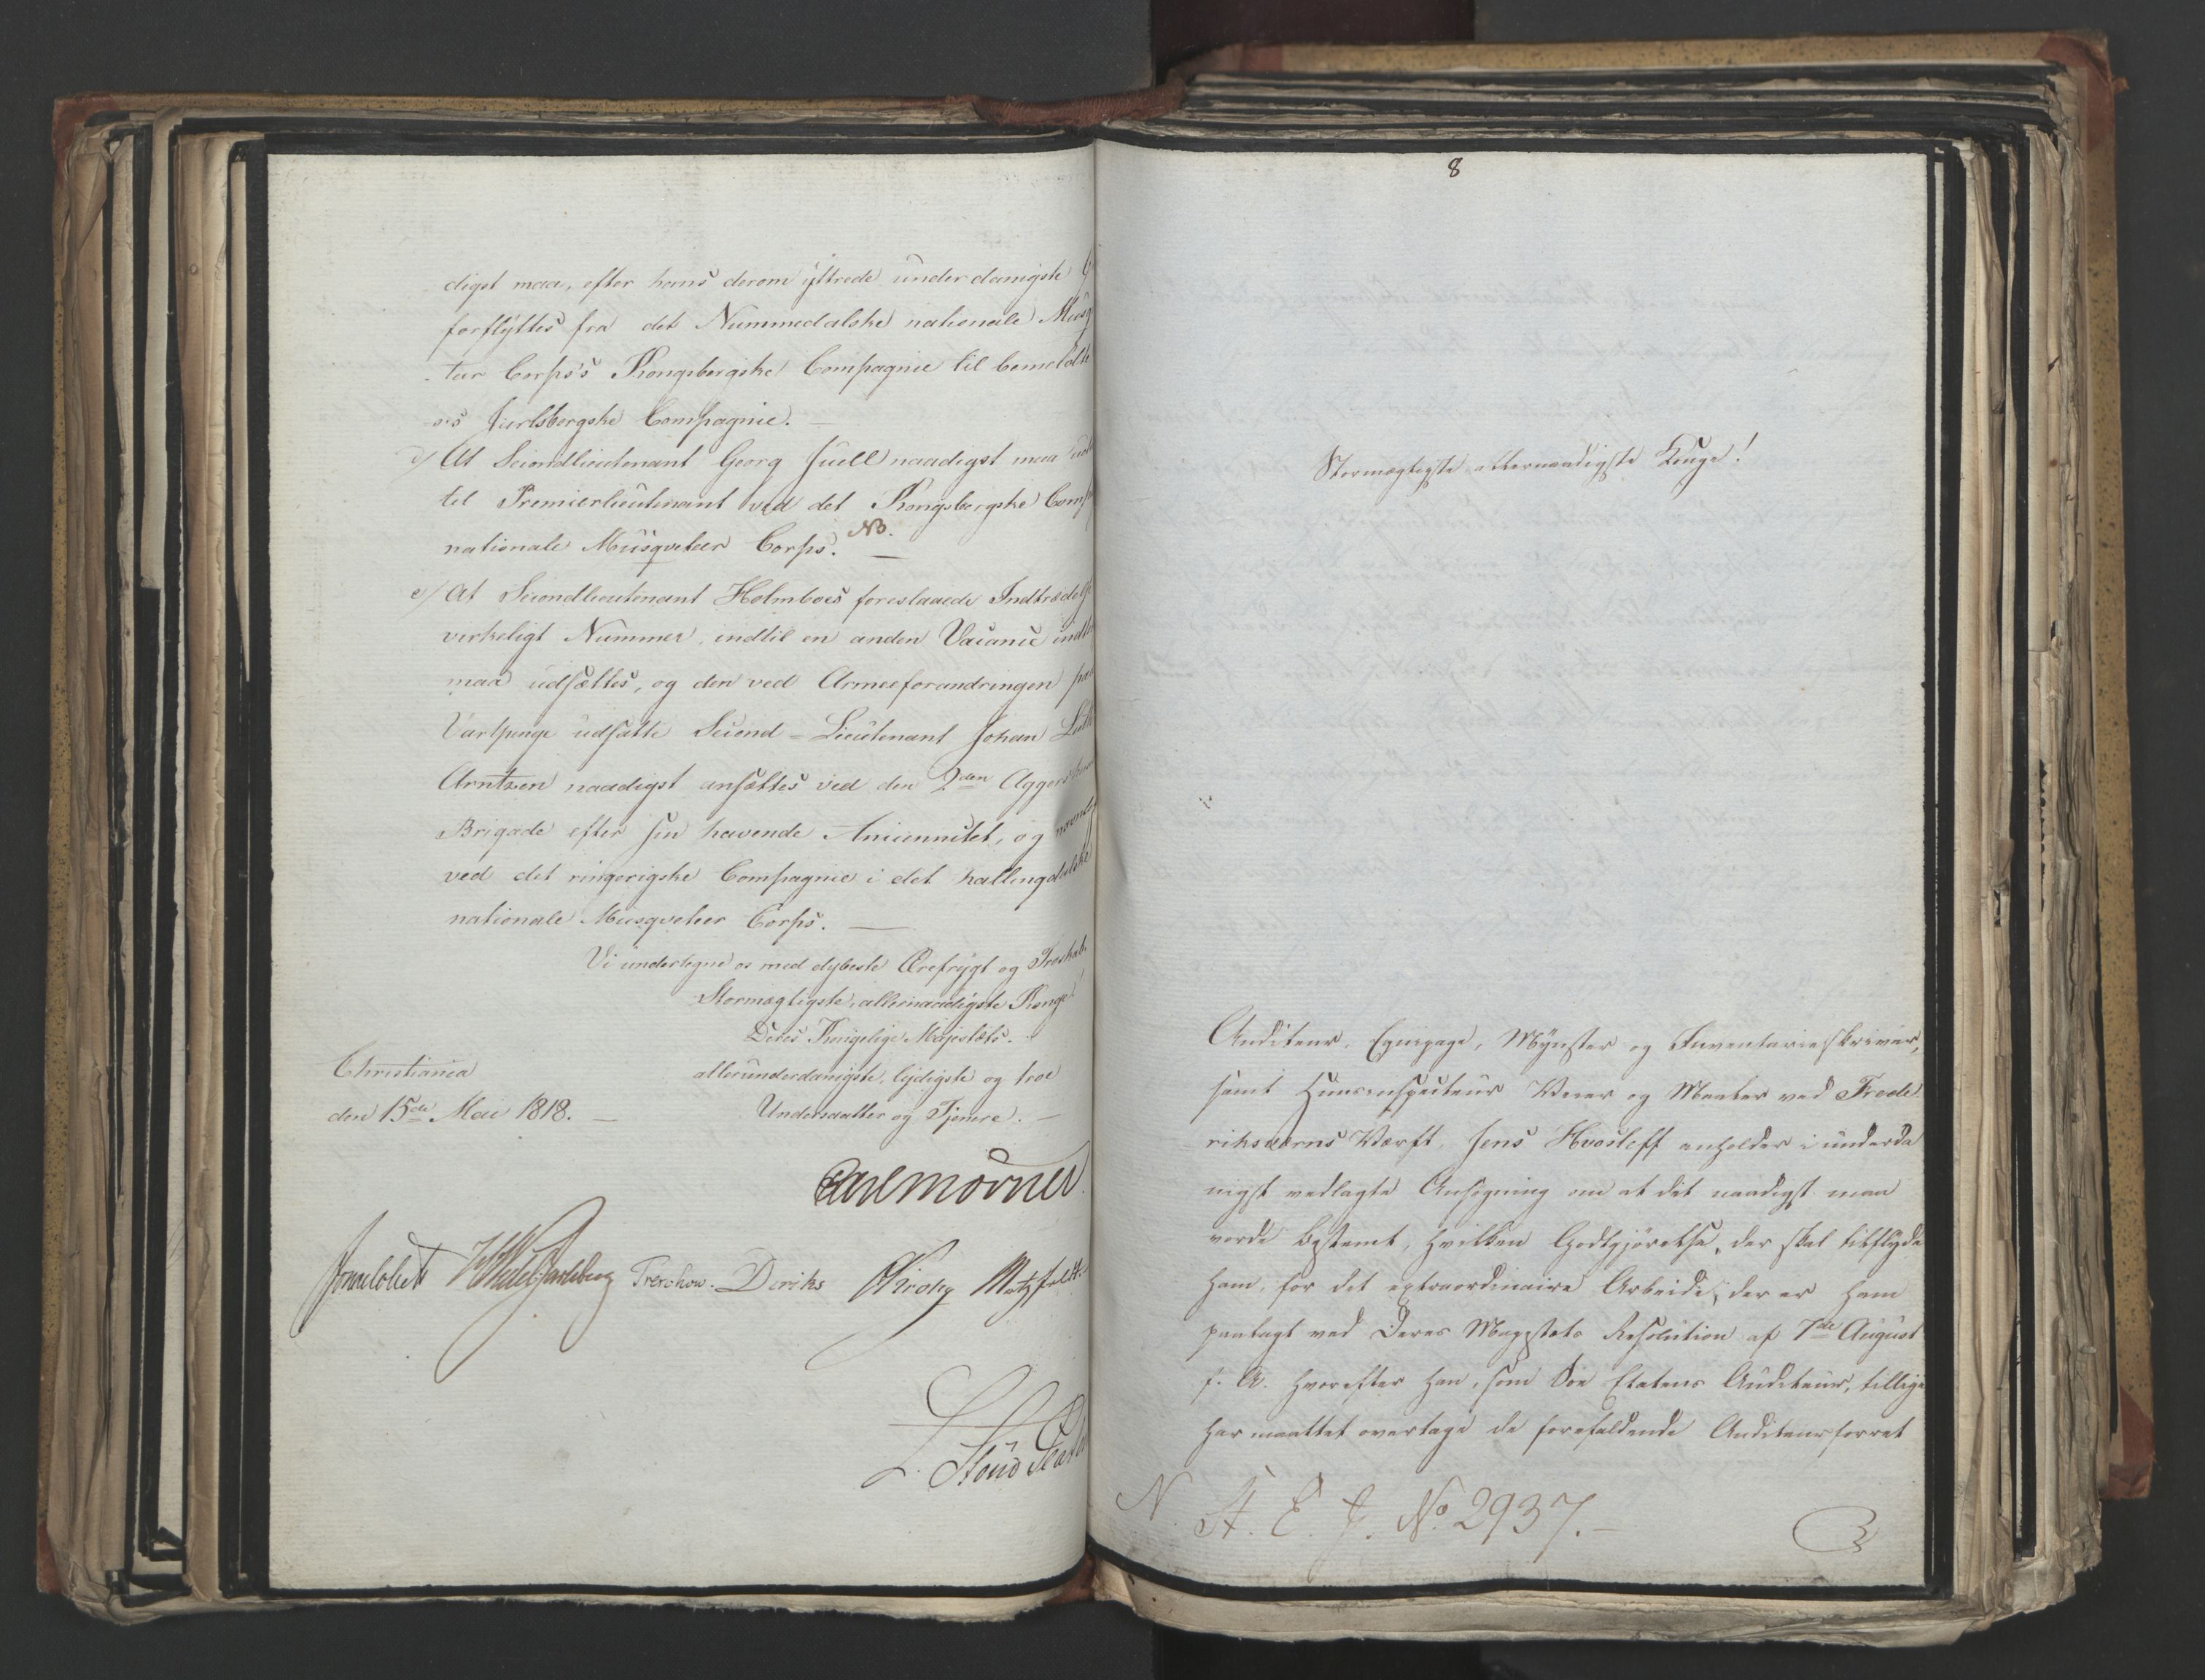 digst maa, efter hans derom yttrede underdanigste
forflyttes fra det Nummedalske nationale Musq
-teer Corps's Kongsbergske Compagnie til bemeldte
Jarlsbergske Compagnie. —
d/ At Secondlieutenant Georg Juell naadigst maa
til Premierlieutenant ved det Kongsbergske Comp
nationale Musqveteer Corps. NB. —
e/ At Secondlieutenant Holmboes foreslaaede Indtrædelse
virkeligt Nummer, indtil en anden Vacance
maa udsættes, og den ved Armeeforandringen paa
Vartpenge udsatte Second-Lieutenant Johan
Arntzen naadigst ansættes ved den 2den Aggershuus
Brigade efter sin havende Anciennitet, og
ved det ringerigske Compagnie i det hallingdalske
nationale Musqveteer Corps. —
Vi undertegne os med dybeste Ærefrygt og Troskab.
Stormægtigste, allernaadigste Konge!
Deres Kongelige Majestæts.
Christiania
allerunderdanigste, lydigste og troe
den 15de Mai 1818. —
Undersaatter og Tjenere. —
Carl Mörner
Sommelhielm HWedelJarlsberg Treschow. Diriks Krohg Motzfeldt
L. Stoud Plat
8
Stormægtigste allernaadigste Konge!
Auditeur, Equipage, Mynster og Inventarieskriver,
samt Huusinspecteur Over og Mester ved Frede
riksværns Værft, Jens Hvosleff anholder i underda
nigst vedlagte Ansøgning om at det naadigst maa
vorde bestemt, hvilken Godtgjørelse, der skal tilflyde
ham, for det extraordinaire Arbeide, der er ham
paalagt ved Deres Majestæts Resolution af 7de August
f. A. hvorefter han, som Søe Etatens Auditeur, tillige
har maattet overtage de forefaldende Auditeurforret
N. A. E. J. No 2937. —